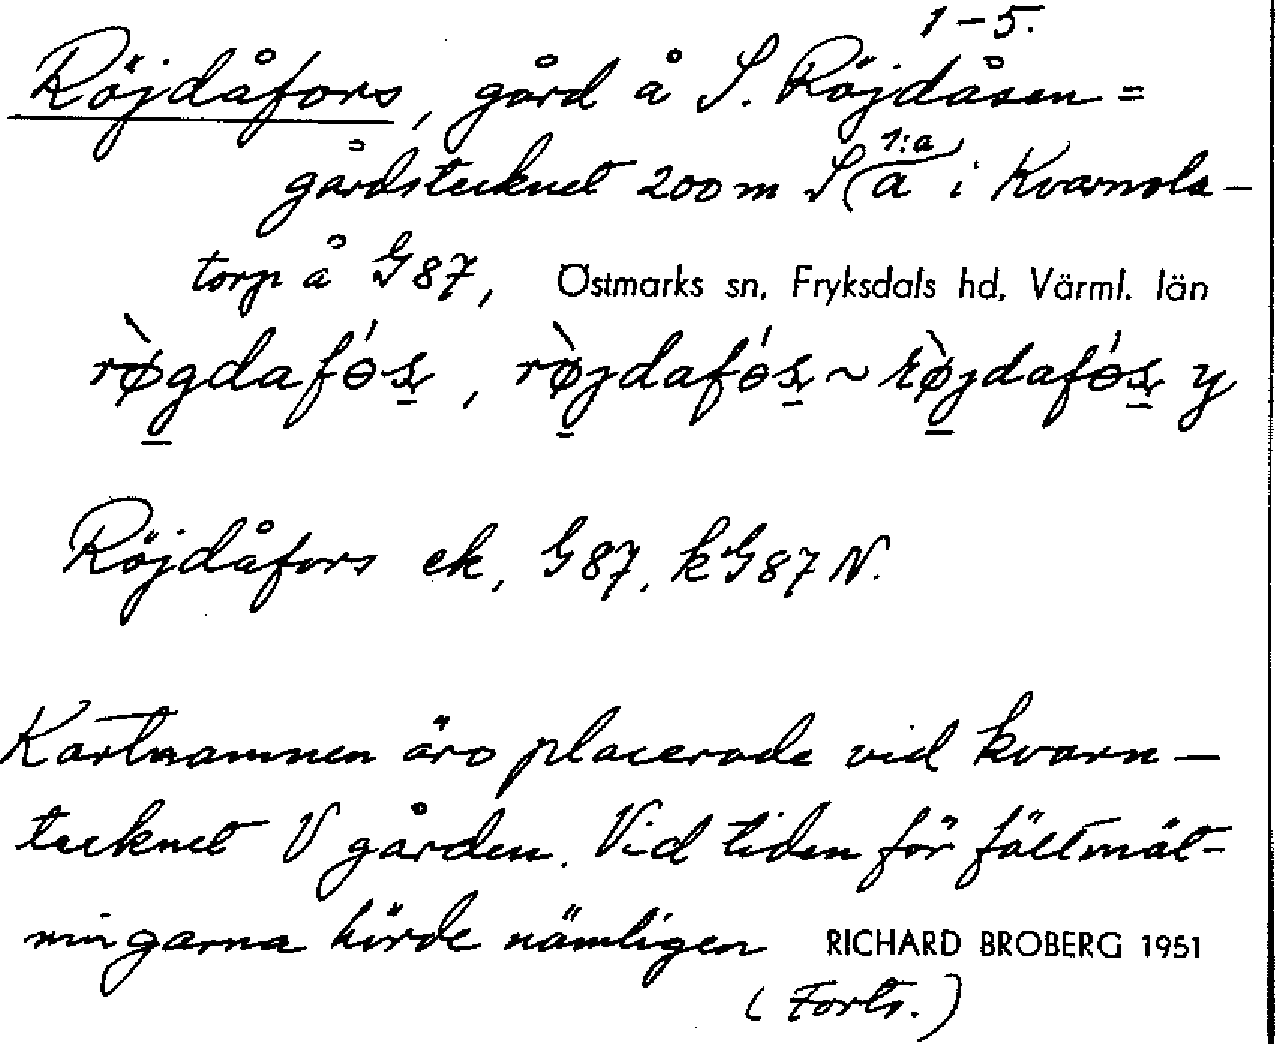 1-5.
Röjdåfors, gård å S. Röjdåsen =
gårdstecknet 200 m S (1:a) a i Kvarnola-
torp å G 87, Östmarks sn, Fryksdals hd, Värml. län
rø̀gdafɵ́ș, rø̀jdafɵ́ș ~ rø̀jdafɵ́ș y
Röjdåfors ek, G 87, kG 87 N.
Kartnamnen äro placerade vid kvarn-
tecknet V gården. Vid tiden för fältmät-
ningarna hörde nämligen RICHARD BROBERG 1951
(Forts.)